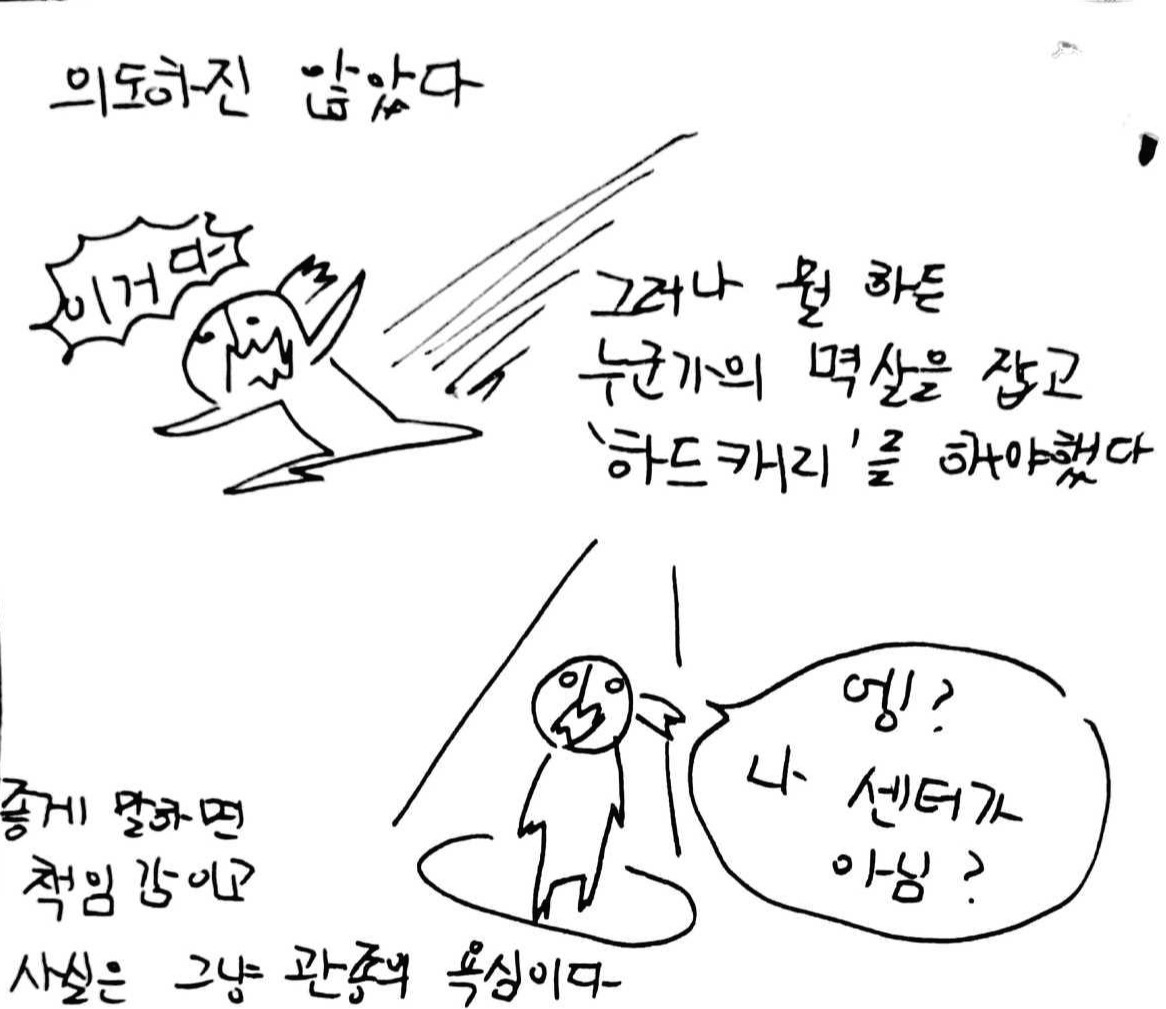 의도하진 않았다
이거다
그러나 뭘 하든
누군가의 멱살을 잡고
'하드캐리'를 해야했다
엥?
나 센터가
아님?
좋게 말하면
책임감이고
사실은 그냥 관종의 욕심이다